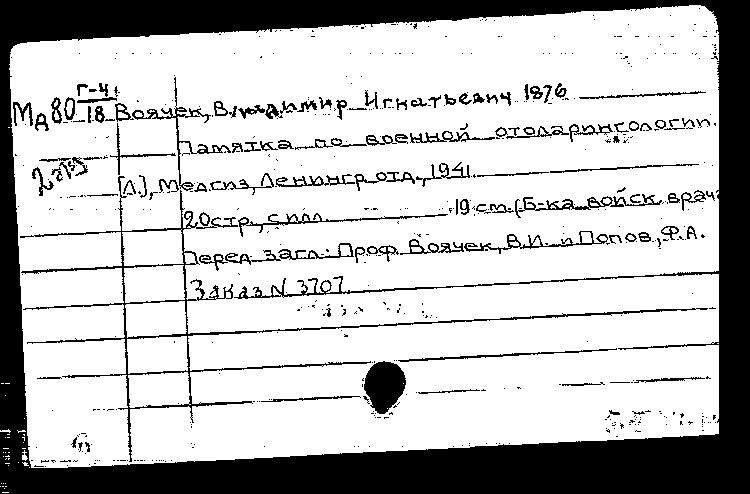 Мд80 Г-4/18 Воячек, Владимир Игнатьевич 1876
Памятка по военной отоларингологии.
2 экз
[Л.], Медгиз, Ленингр. отд., 1941.
20 стр., с илл. 19 см. (Б-ка войск. врача
Перед загл.: Проф. Воячек, В.И. и Попов, Ф.А.
Заказ N 3707.